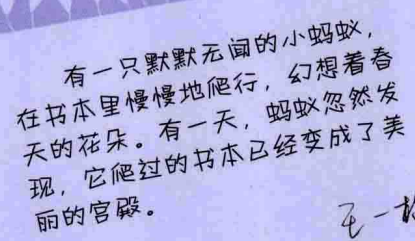 有一只默默无闻的小蚂蚁，
在书本里慢慢地爬行，幻想着春
天的花朵。有一天，蚂蚁忽然发
现，它爬过的书本已经变成了美
丽的宫殿。
王一